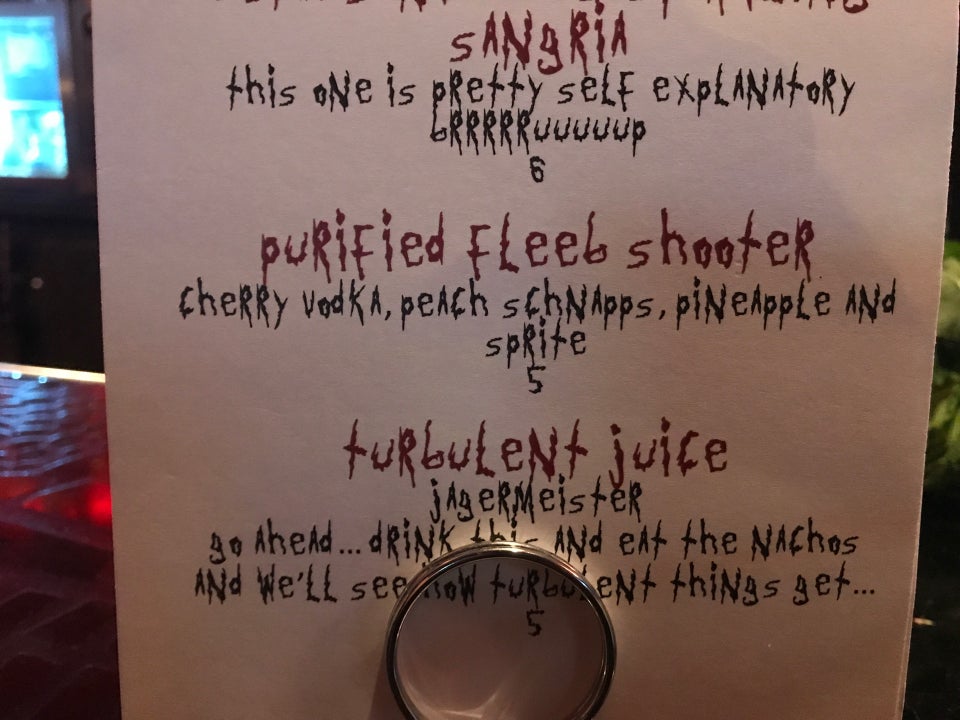 sANgRiA
this oNe is pRetty seLF expLANAtoRy
bRRRRRuuuuup
6
puRiFied FLeeb shooteR
cheRRy vodKA, peAch schNApps, piNeAppLe ANd
spRite
5
tuRbuLeNt juice
jAgeRMeisteR
go AheAd... dRiNK this ANd eAt the NAchos
ANd We'LL see hoW tuRbuLeNt thiNgs get...
5